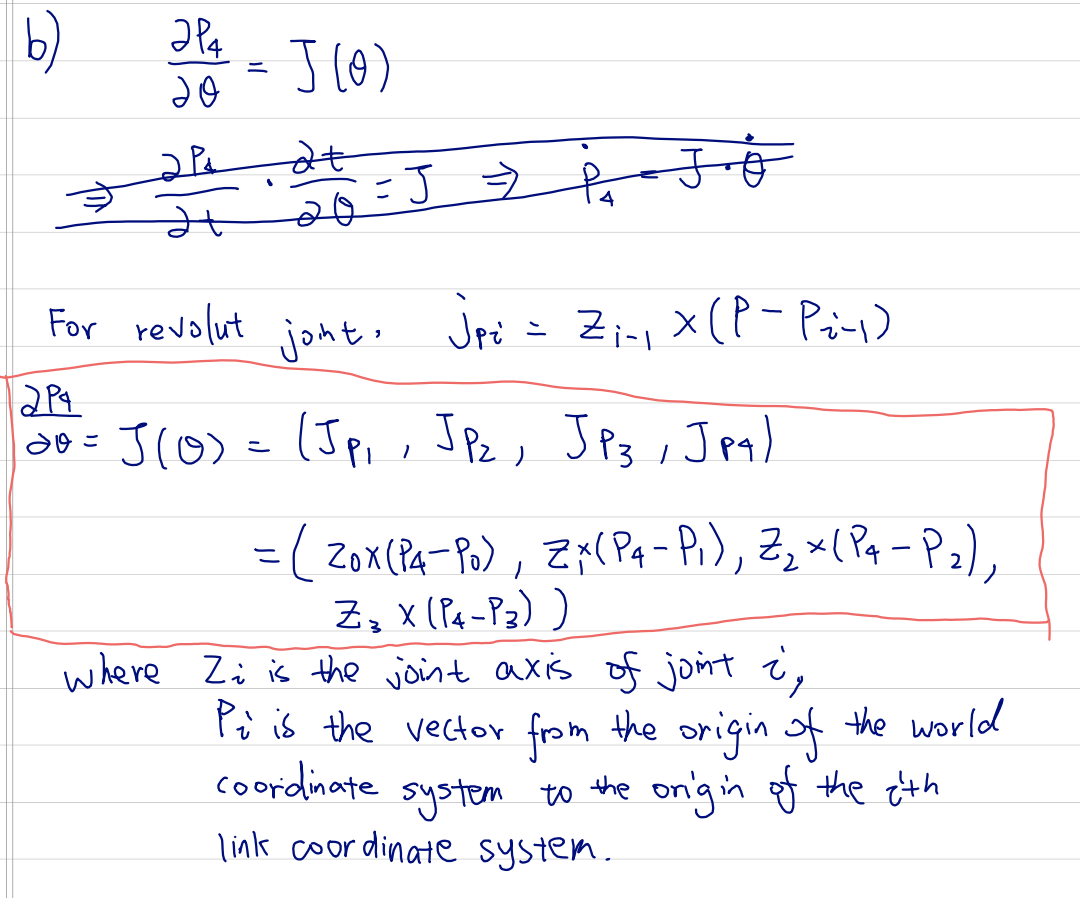 b) ∂P₄/∂θ = J(θ)
⇒ ∂P₄/∂t · ∂t/∂θ = J ⇒ Ṗ₄ = J · θ̇
For revolut joint, jₚᵢ = Zᵢ₋₁ × (P − Pᵢ₋₁)
∂P₄/∂θ = J(θ) = (Jₚ₁, Jₚ₂, Jₚ₃, Jₚ₄)
= ( Z₀×(P₄−P₀), Z₁×(P₄−P₁), Z₂×(P₄−P₂),
Z₃ × (P₄−P₃) )
where Zᵢ is the joint axis of joint i,
Pᵢ is the vector from the origin of the world
coordinate system to the origin of the i'th
link coordinate system.